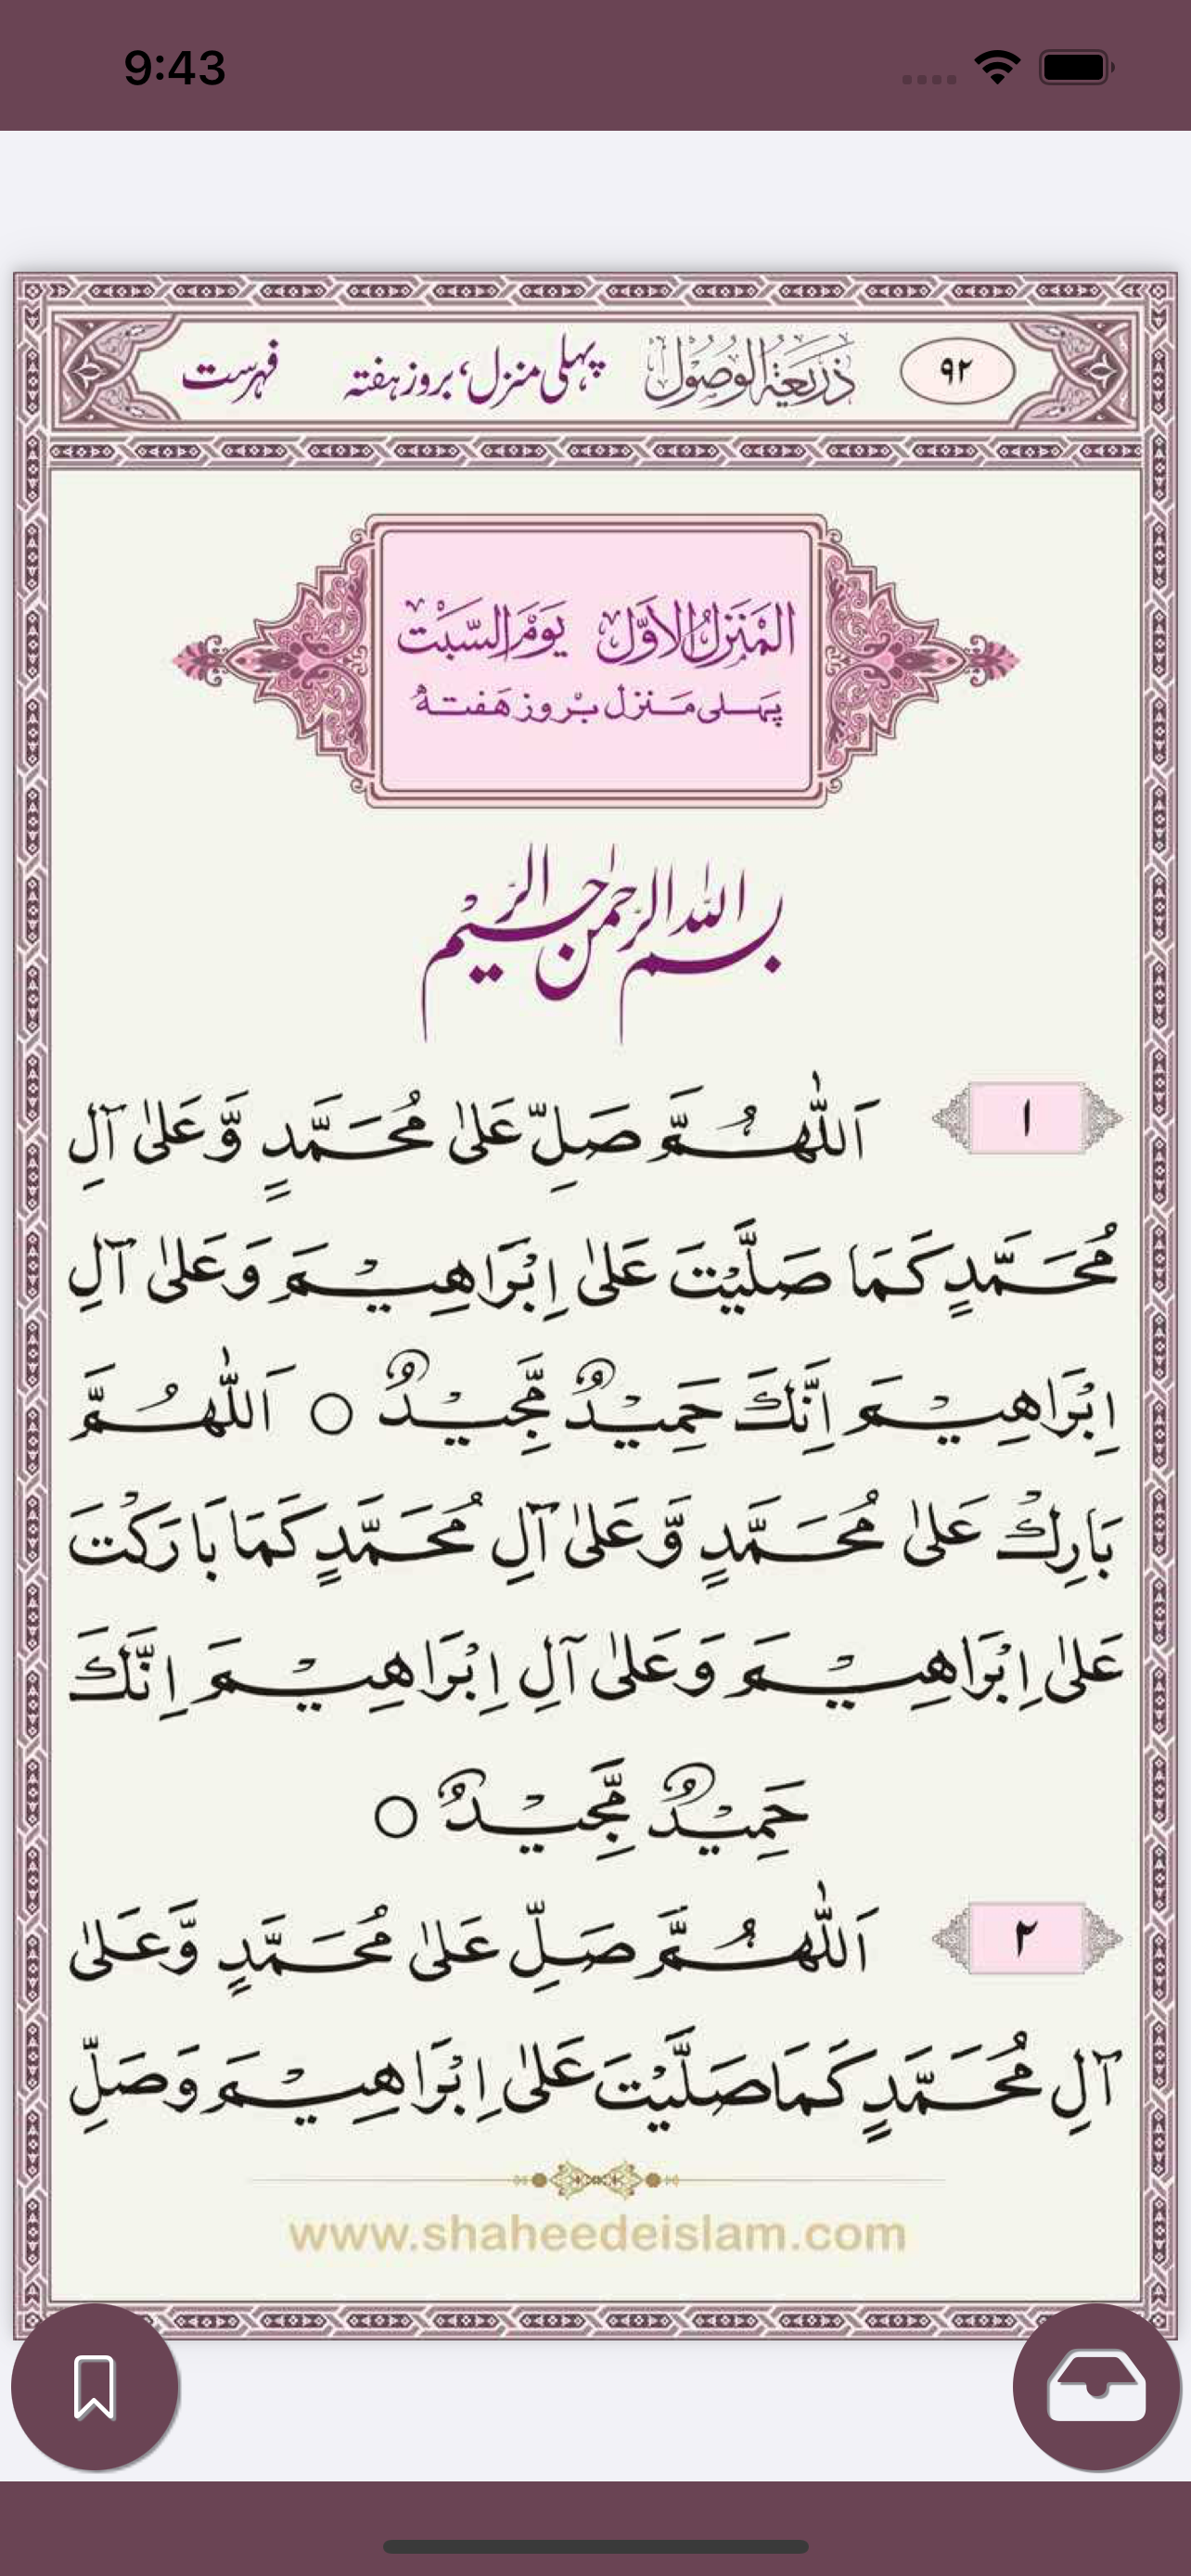 9:43
۹۲ ذَرِيعَةُ الوُصُول پہلی منزل، بروز ہفتہ فہرست
المَنزِلُ الاَوَّل يَومُ السَّبْت
پہلی منزل بروز هفته
بسم الله الرحمن الرحيم
۱ اَللّٰهُمَّ صَلِّ عَلىٰ مُحَمَّدٍ وَّعَلىٰ آلِ
مُحَمَّدٍ كَمَا صَلَّيْتَ عَلىٰ اِبْرَاهِيْمَ وَعَلىٰ آلِ
اِبْرَاهِيْمَ اِنَّكَ حَمِيْدٌ مَّجِيْدٌ ○ اَللّٰهُمَّ
بَارِكْ عَلىٰ مُحَمَّدٍ وَّعَلىٰ آلِ مُحَمَّدٍ كَمَا بَارَكْتَ
عَلىٰ اِبْرَاهِيْمَ وَعَلىٰ آلِ اِبْرَاهِيْمَ اِنَّكَ
حَمِيْدٌ مَّجِيْدٌ ○
۲ اَللّٰهُمَّ صَلِّ عَلىٰ مُحَمَّدٍ وَّعَلىٰ
آلِ مُحَمَّدٍ كَمَا صَلَّيْتَ عَلىٰ اِبْرَاهِيْمَ وَصَلِّ
www.shaheedeislam.com